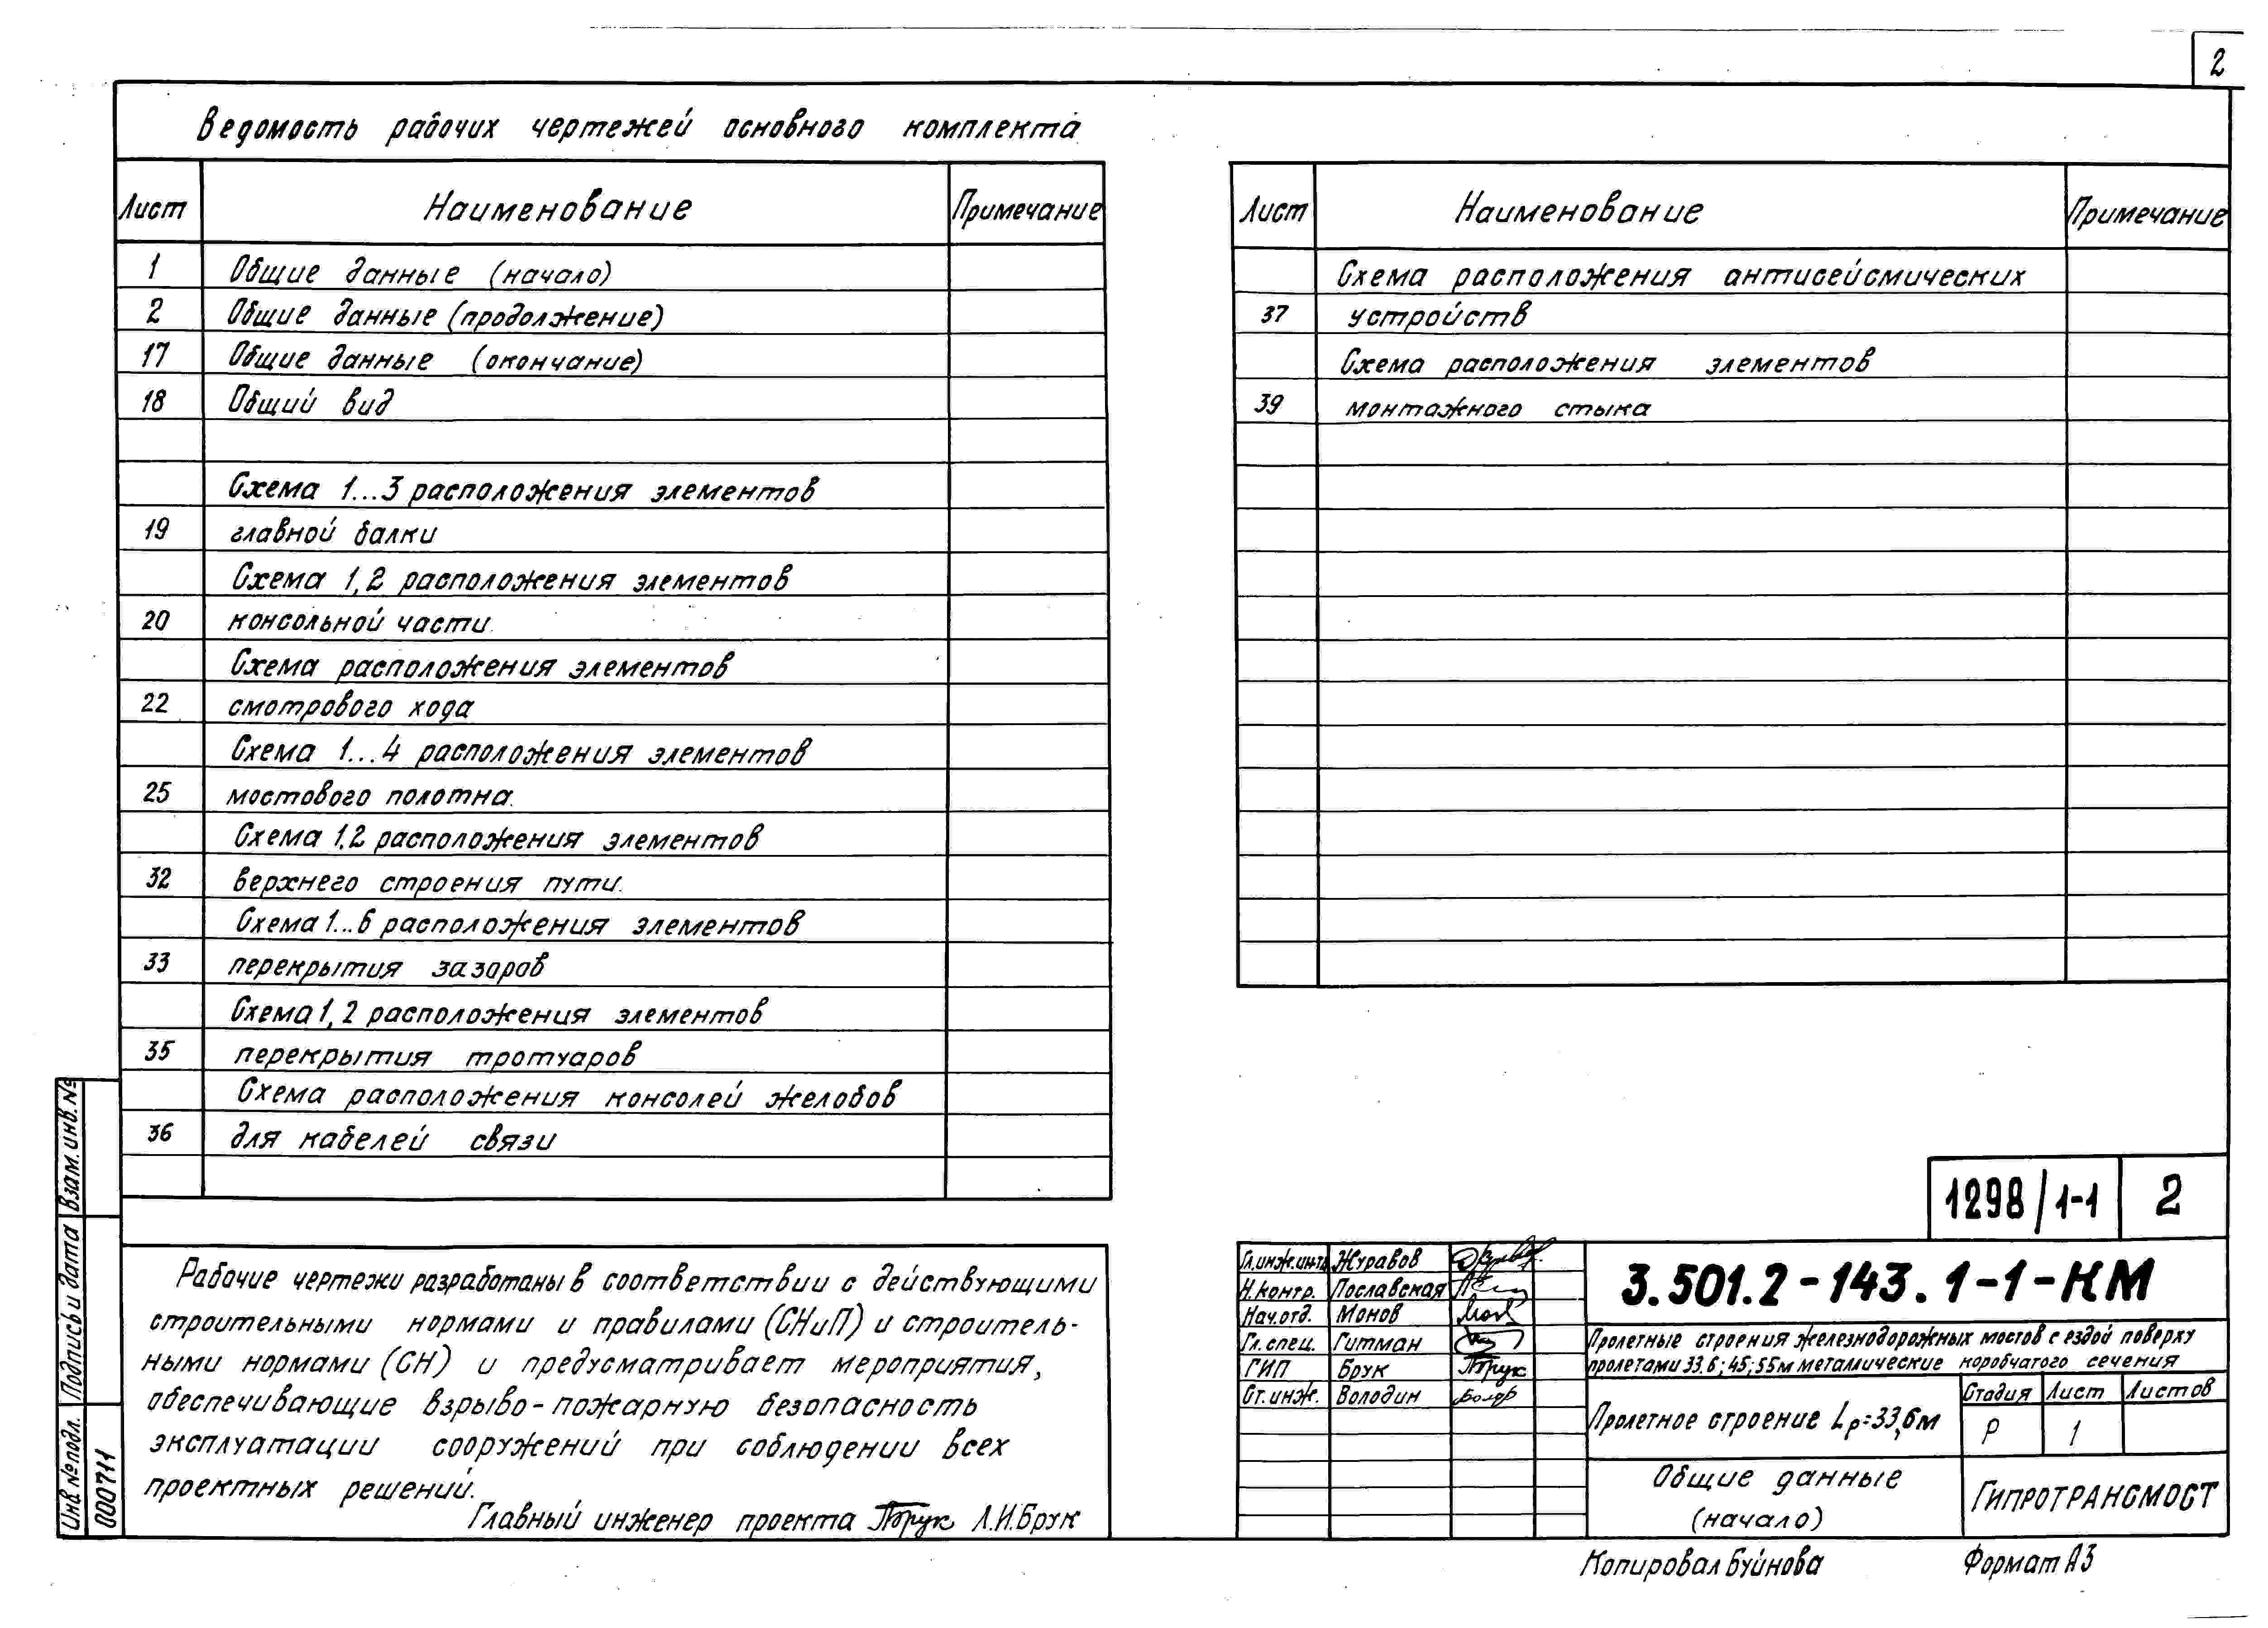 2
Ведомость рабочих чертежей основного комплекта
Лист Наименование Примечание
1 Общие данные (начало)
2 Общие данные (продолжение)
17 Общие данные (окончание)
18 Общий вид
Схема 1...3 расположения элементов
19 главной балки
Схема 1,2 расположения элементов
20 консольной части.
Схема расположения элементов
22 смотрового хода
Схема 1...4 расположения элементов
25 мостового полотна.
Схема 1,2 расположения элементов
32 верхнего строения пути.
Схема 1...6 расположения элементов
33 перекрытия зазоров
Схема 1,2 расположения элементов
35 перекрытия тротуаров
Схема расположения консолей желобов
36 для кабелей связи
Лист Наименование Примечание
Схема расположения антисейсмических
37 устройств
Схема расположения элементов
39 монтажного стыка
Рабочие чертежи разработаны в соответствии с действующими
строительными нормами и правилами (СНиП) и строитель-
ными нормами (СН) и предусматривает мероприятия,
обеспечивающие взрыво-пожарную безопасность
эксплуатации сооружений при соблюдении всех
проектных решений.
Главный инженер проекта Брук Л.И.Брук
Взам. инв. №
Подпись и дата
Инв № подл.
000711
1298/1-1 2
Гл.инж.инта Журавов
Н.контр. Пославская
Нач.отд. Монов
Гл.спец. Гитман
ГИП Брук Брук
Ст.инж. Володин
3.501.2-143.1-1-КМ
Пролетные строения железнодорожных мостов с ездой поверху
пролетами 33.6; 45; 55м металлические коробчатого сечения
Пролетное строение Lр=33,6м
Стадия Лист Листов
Р 1
Общие данные
(начало)
ГИПРОТРАНСМОСТ
Копировал Буйнова Формат А3